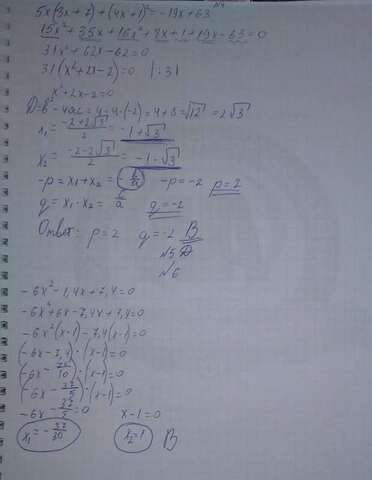 №4
5x(3x+7)+(4x+1)²=-19x+63
15x²+35x+16x²+8x+1+19x-63=0
31x²+62x-62=0
31(x²+2x-2)=0 |:31
x²+2x-2=0
D=b²-4ac=4-4·(-2)=4+8=√12=2√3
x₁=(-2+2√3)/2=-1+√3
x₂=(-2-2√3)/2=-1-√3
-p=x₁+x₂=-b/a -p=-2 p=2
q=x₁·x₂=c/a q=-2
Ответ: p=2 q=-2 B
№5 D
№6
-6x²-1,4x+7,4=0
-6x²+6x-7,4x+7,4=0
-6x²(x-1)-7,4(x-1)=0
(-6x-7,4)·(x-1)=0
(-6x-74/10)·(x-1)=0
(-6x-37/5)·(x-1)=0
-6x-37/5=0 x-1=0
x₁=-37/30 x₂=1 B